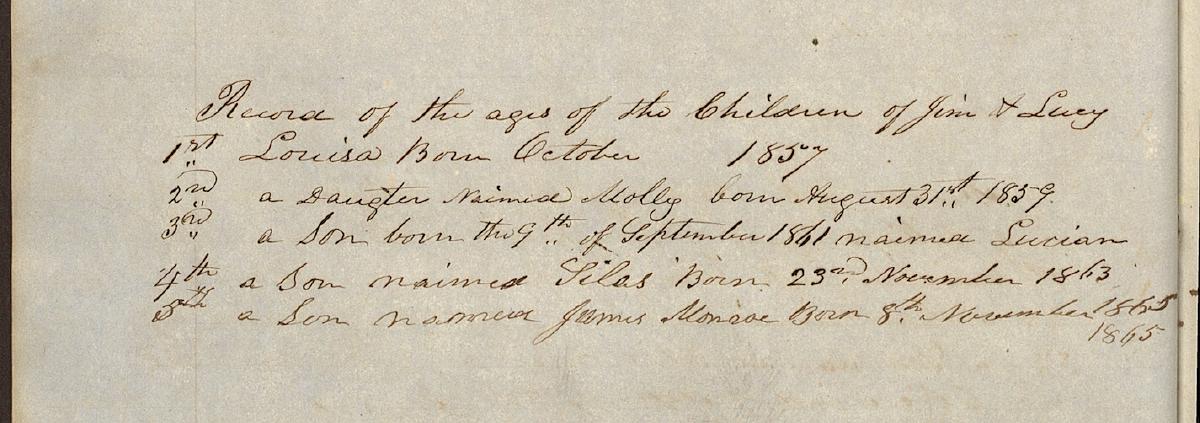 Record of the ages of the Children of Jim & Lucy
1st Louisa Born October 1857
2nd a Daugter Naimed Molly born August 31st 1859
3rd a Son born the 9th of September 1861 naimed Lucian
4th a Son naimed Silas Born 23rd November 1863
5th a Son named James Monroe Born 8th November 1865
1865